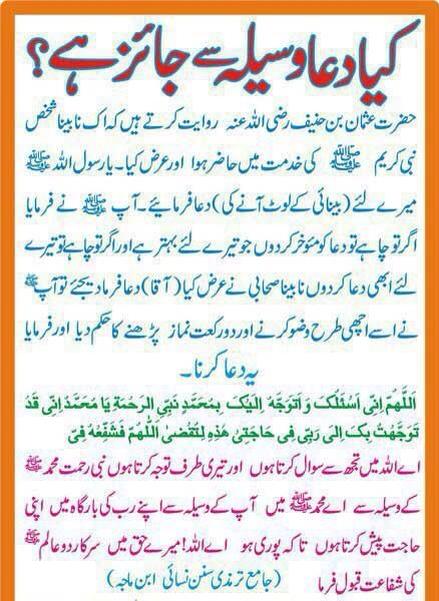 کیا دعا وسیلہ سے جائز ہے؟
حضرت عثمان بن حنیف رضی اللہ عنہ روایت کرتے ہیں کہ اک نابینا شخص
نبی کریم ﷺ کی خدمت میں حاضر ہوا اور عرض کیا۔ یارسول اللہ ﷺ
میرے لئے (بینائی کے لوٹ آنے کی) دعا فرمائیے۔ آپ ﷺ نے فرمایا
اگر تو چاہے تو دعا کو مؤخر کردوں جو تیرے لئے بہتر ہے اور اگر تو چاہے تو تیرے
لئے ابھی دعا کردوں نابینا صحابی نے عرض کیا (آقا) دعا فرما دیجئے تو آپ ﷺ
نے اسے اچھی طرح وضو کرنے اور دو رکعت نماز پڑھنے کا حکم دیا اور فرمایا
یہ دعا کرنا۔
اَللّٰهُمَّ اِنِّی اَسْئَلُکَ وَ اَتَوَجَّهُ اِلَیْکَ بِمُحَمَّدٍ نَبِیِّ الرَّحْمَةِ یَا مُحَمَّدُ اِنِّی قَدْ
تَوَجَّهْتُ بِکَ اِلٰی رَبِّی فِی حَاجَتِیْ هٰذِهِ لِتُقْضٰی اَللّٰهُمَّ فَشَفِّعْهُ فِیَّ
اے اللہ میں تجھ سے سوال کرتا ہوں اور تیری طرف توجہ کرتا ہوں نبی رحمت محمد ﷺ
کے وسیلہ سے اے محمد ﷺ میں آپ کے وسیلہ سے اپنے رب کی بارگاہ میں اپنی
حاجت پیش کرتا ہوں تاکہ پوری ہو اے اللہ! میرے حق میں سرکار دو عالم ﷺ
کی شفاعت قبول فرما (جامع ترمذی سنن نسائی ابن ماجہ)